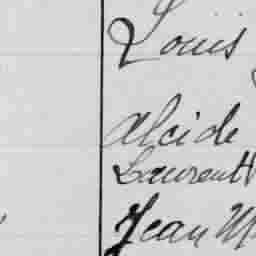 Louis
Alcide
Laurent
Jean M